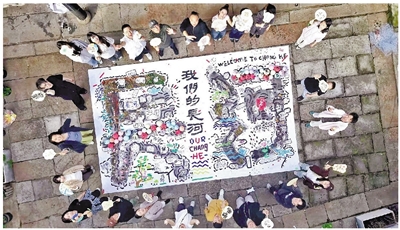 WELCOME TO CHANG HE
我們的長河
OUR
CHANG
HE